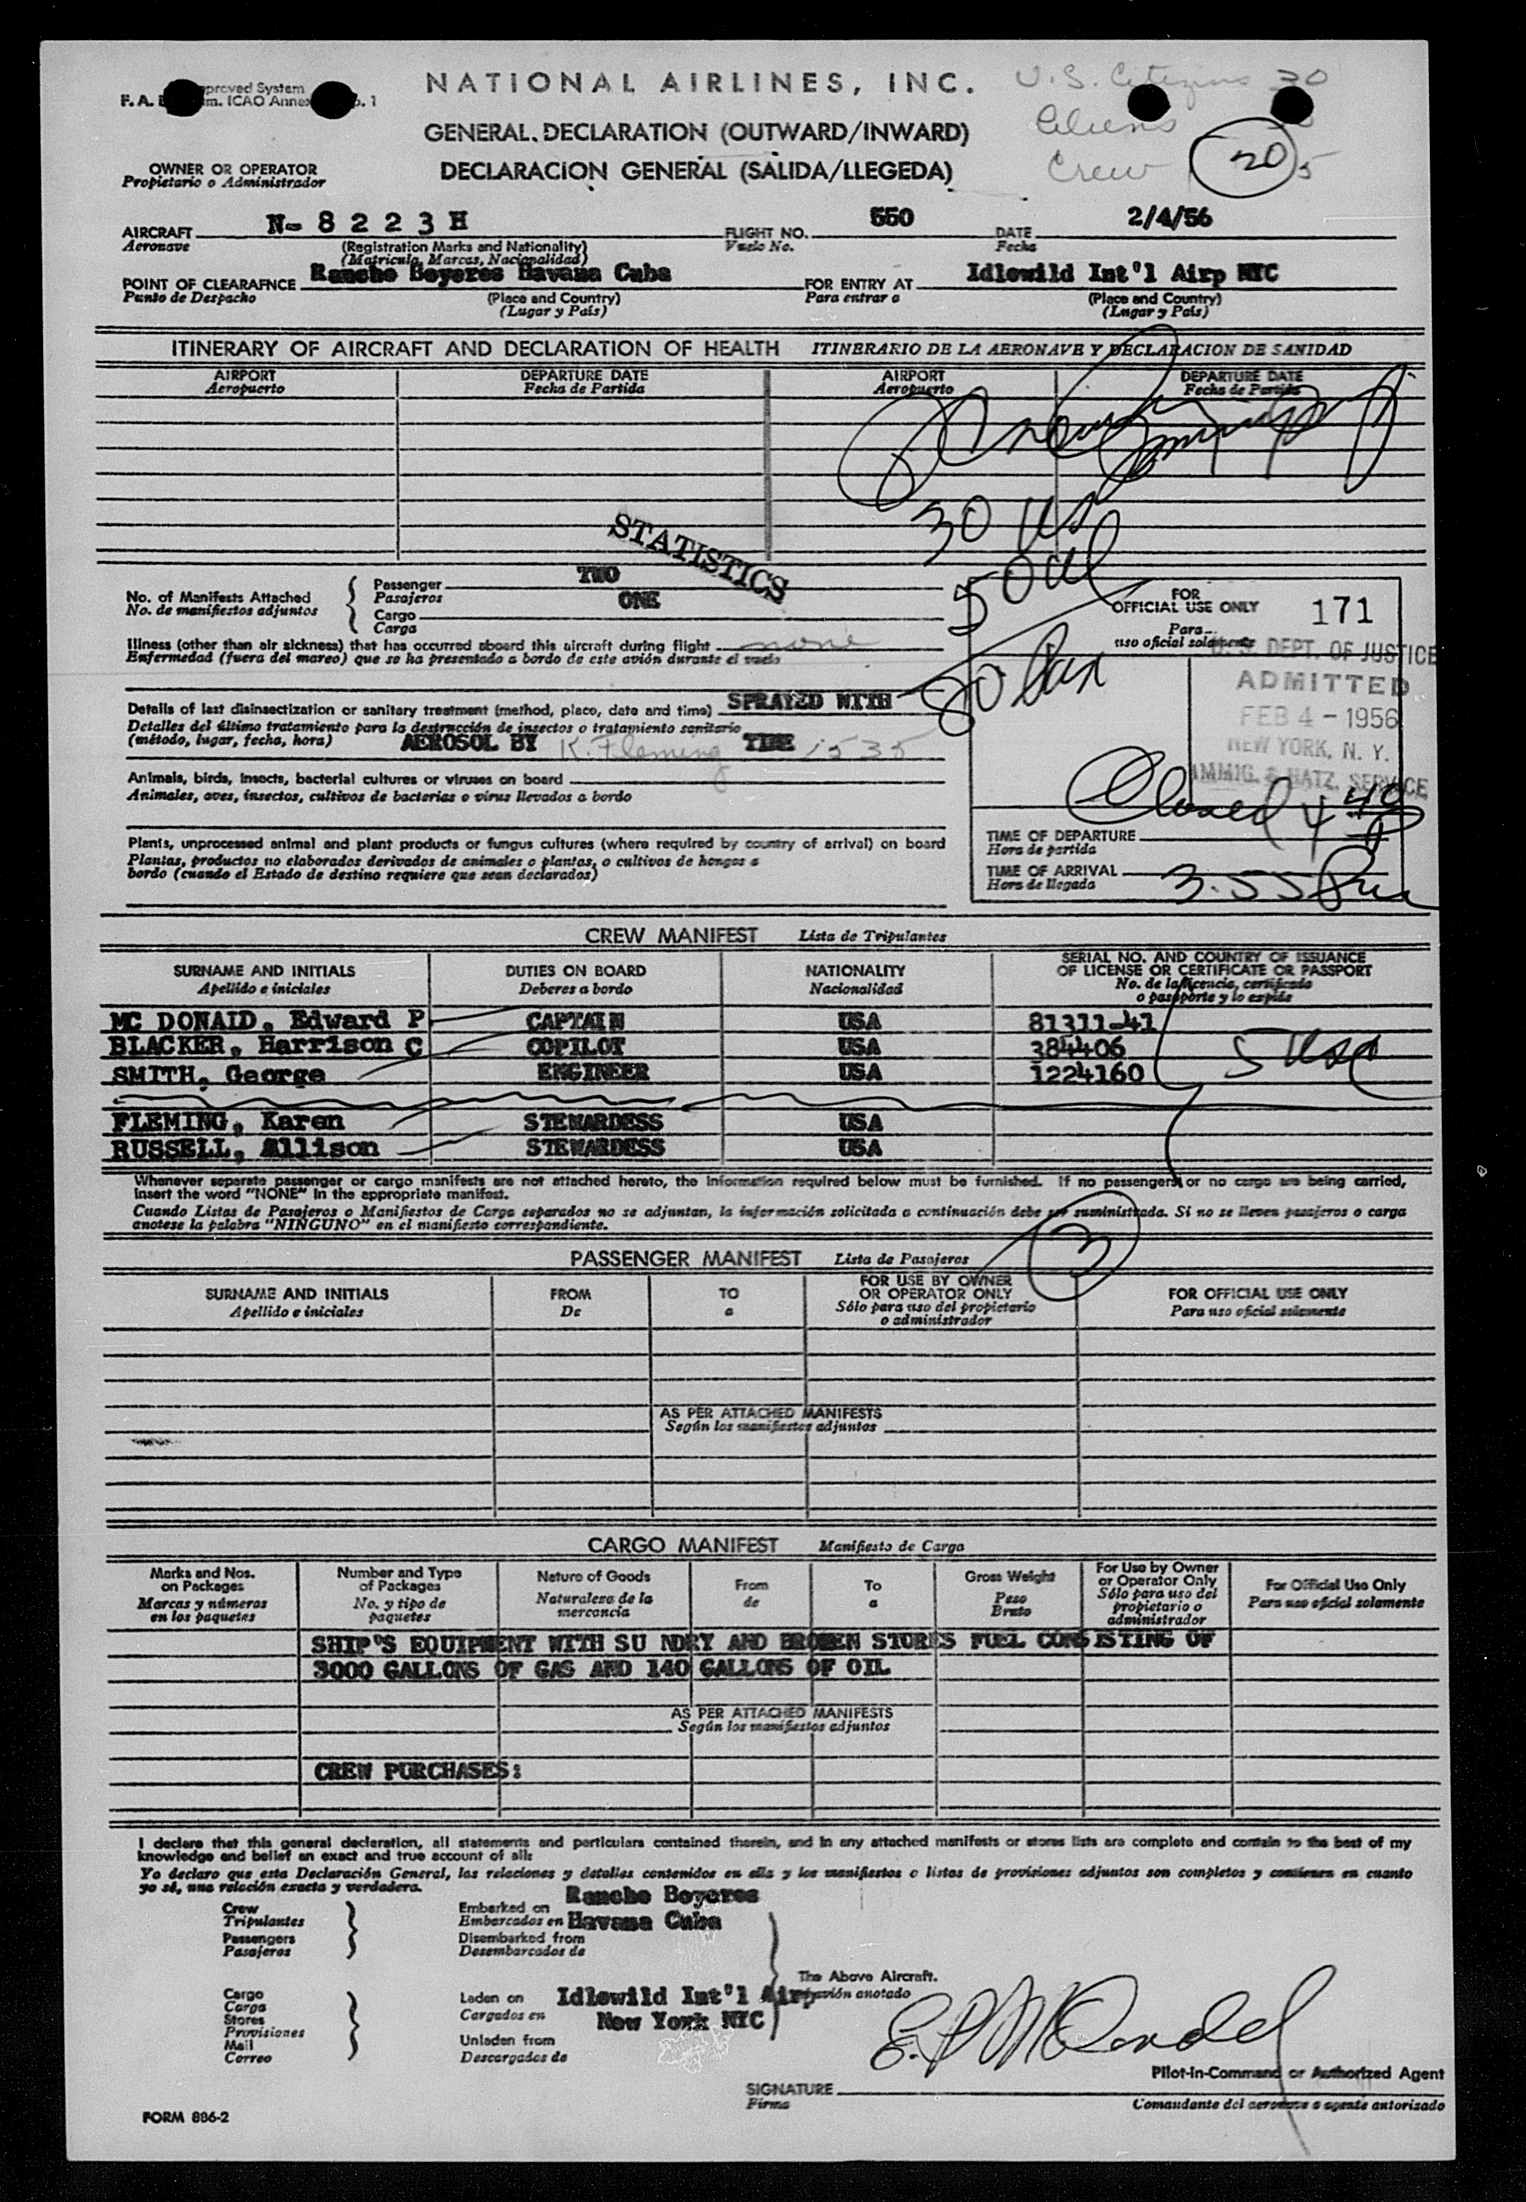 NATIONAL AIRLINES, INC.
U.S. Citizens 30
F. A. proved System
m. ICAO Annex . 1
Aliens
GENERAL DECLARATION (OUTWARD/INWARD)
Crew 20 5
OWNER OR OPERATOR
Propietario o Administrador
DECLARACION GENERAL (SALIDA/LLEGEDA)
AIRCRAFT N-8223H FLIGHT NO. 550 DATE 2/4/56
Aeronave (Registration Marks and Nationality) Vuelo No. Fecha
(Matricula, Marcas, Nacionalidad)
POINT OF CLEARAFNCE Rancho Boyeros Havana Cuba FOR ENTRY AT Idlewild Int'l Airp NYC
Punto de Despacho (Place and Country) Para entrar a (Place and Country)
(Lugar y País) (Lugar y País)
ITINERARY OF AIRCRAFT AND DECLARATION OF HEALTH ITINERARIO DE LA AERONAVE Y DECLARACION DE SANIDAD
AIRPORT DEPARTURE DATE AIRPORT DEPARTURE DATE
Aeropuerto Fecha de Partida Aeropuerto Fecha de Partida
30 US
STATISTICS
No. of Manifests Attached
No. de manifiestos adjuntos
Passenger TWO
Pasajeros
Cargo ONE
Carga
Illness (other than air sickness) that has occurred aboard this aircraft during flight none
Enfermedad (fuera del mareo) que se ha presentado a bordo de este avión durante el vuelo
Details of last disinsectization or sanitary treatment (method, place, date and time) SPRAYED WITH
Detalles del último tratamiento para la destrucción de insectos o tratamiento sanitario
(método, lugar, fecha, hora) AEROSOL BY K. Fleming TIME 1535
Animals, birds, insects, bacterial cultures or viruses on board
Animales, aves, insectos, cultivos de bacterias o virus llevados a bordo
Plants, unprocessed animal and plant products or fungus cultures (where required by country of arrival) on board
Plantas, productos no elaborados derivados de animales o plantas, o cultivos de hongos a
bordo (cuando el Estado de destino requiere que sean declarados)
FOR
OFFICIAL USE ONLY 171
Para
uso oficial solamente
U. S. DEPT. OF JUSTICE
ADMITTED
FEB 4 - 1956
NEW YORK, N. Y.
IMMIG. & NATZ. SERVICE
Closed 4 40
TIME OF DEPARTURE
Hora de partida
TIME OF ARRIVAL 3.55 Pm
Hora de llegada
CREW MANIFEST Lista de Tripulantes
SURNAME AND INITIALS DUTIES ON BOARD NATIONALITY SERIAL NO. AND COUNTRY OF ISSUANCE
OF LICENSE OR CERTIFICATE OR PASSPORT
Apellido e iniciales Deberes a bordo Nacionalidad No. de la licencia, certificado
o pasaporte y lo expide
MC DONALD, Edward P CAPTAIN USA 81311-41
BLACKER, Harrison C COPILOT USA 384406
5 USA
SMITH, George ENGINEER USA 1224160
FLEMING, Karen STEWARDESS USA
RUSSELL, Allison STEWARDESS USA
Whenever separate passenger or cargo manifests are not attached hereto, the information required below must be furnished. If no passengers or no cargo are being carried,
insert the word "NONE" in the appropriate manifest.
Cuando Listas de Pasajeros o Manifiestos de Carga separados no se adjuntan, la información solicitada a continuación debe ser suministrada. Si no se lleven pasajeros o carga
anotese la palabra "NINGUNO" en el manifiesto correspondiente.
3
PASSENGER MANIFEST Lista de Pasajeros
SURNAME AND INITIALS FROM TO FOR USE BY OWNER
OR OPERATOR ONLY FOR OFFICIAL USE ONLY
Apellido e iniciales De a Sólo para uso del propietario
o administrador Para uso oficial solamente
AS PER ATTACHED MANIFESTS
Según los manifiestos adjuntos
CARGO MANIFEST Manifiesto de Carga
Marks and Nos.
on Packages
Marcas y números
en los paquetes
Number and Type
of Packages
No. y tipo de
paquetes
Nature of Goods
Naturaleza de la
mercancia
From
de
To
a
Gross Weight
Peso
Bruto
For Use by Owner
or Operator Only
Sólo para uso del
propietario o
administrador
For Official Use Only
Para uso oficial solamente
SHIP'S EQUIPMENT WITH SU NDRY AND BROKEN STORES FUEL CONSISTING OF
3000 GALLONS OF GAS AND 140 GALLONS OF OIL
AS PER ATTACHED MANIFESTS
Según los manifiestos adjuntos
CREW PURCHASES:
I declare that this general declaration, all statements and particulars contained therein, and in any attached manifests or stores lists are complete and contain to the best of my
knowledge and belief an exact and true account of all:
Yo declaro que esta Declaración General, las relaciones y detalles contenidos en ella y los manifiestos o listas de provisiones adjuntos son completos y contienen en cuanto
yo sé, una relación exacta y verdadera.
Crew
Tripulantes
Passengers
Pasajeros
Embarked on Rancho Boyeros
Embarcados en Havana Cuba
Disembarked from
Desembarcados de
Cargo
Carga
Stores
Provisiones
Mail
Correo
Laden on Idlewild Int'l Airp
Cargados en New York NYC
Unladen from
Descargados de
The Above Aircraft.
avión anotado
E. P. McDonald
Pilot-in-Command or Authorized Agent
SIGNATURE
Firma Comandante del aeronave o agente autorizado
FORM 886-2